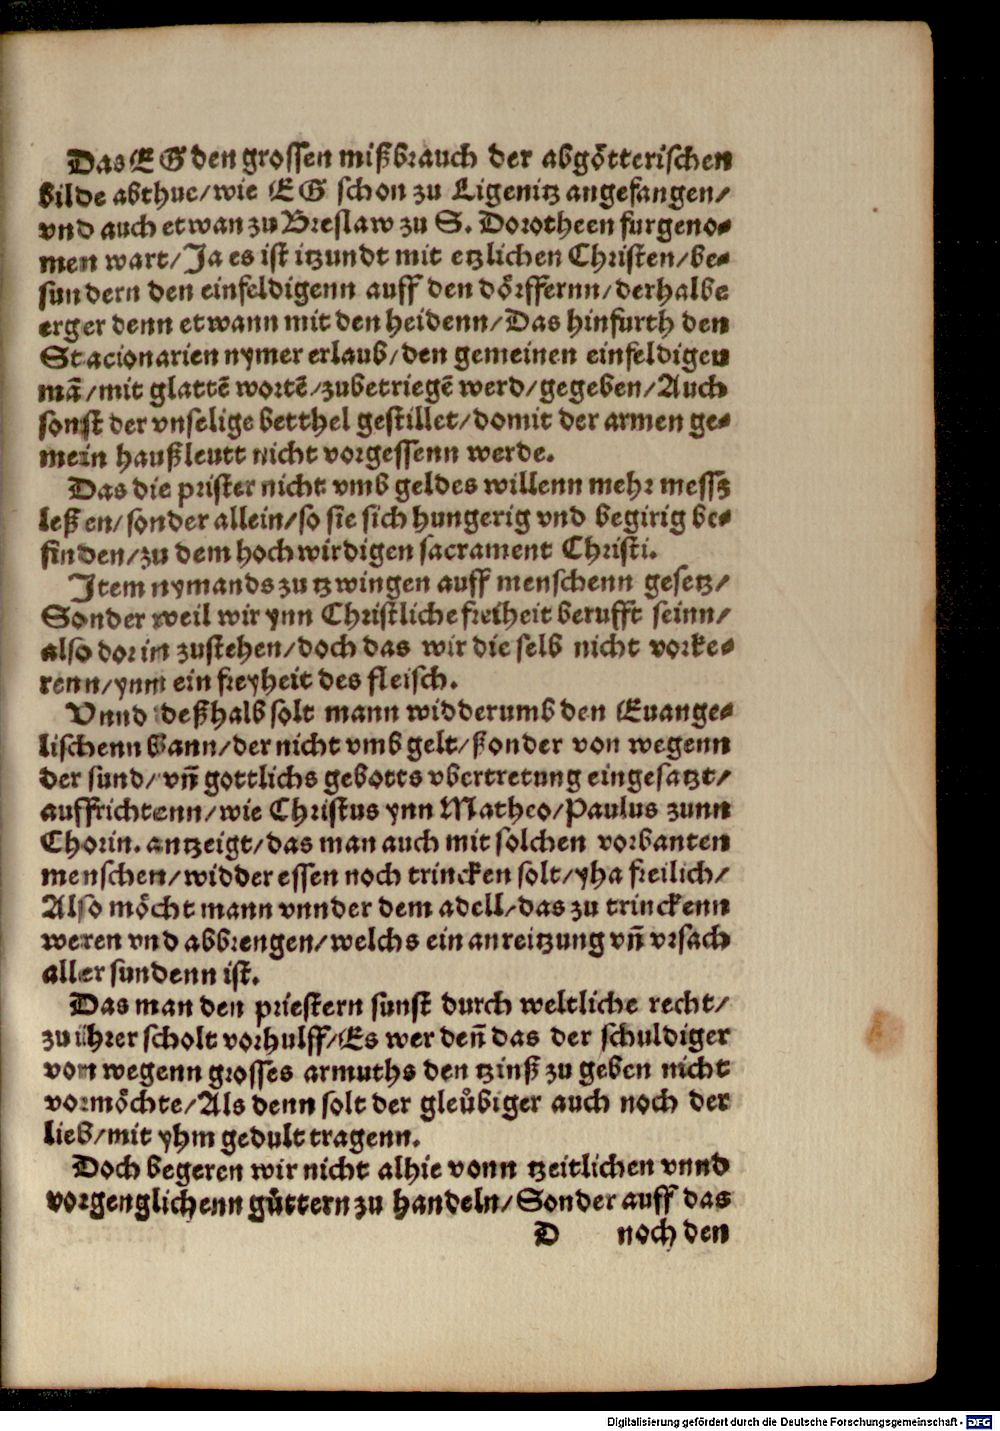 Das EG den grossen mißbrauch der abgötterischen
bilde abthue/wie EG schon zu Ligenitz angefangen/
vnd auch etwan zu Breslaw zu S. Dorotheen furgeno-
men wart/Ja es ist itzundt mit etzlichen Christen/be-
sundern den einfeldigenn auff den dörffernn/derhalbe
erger denn etwann mit den heidenn/Das hinfurth den
Stacionarien nymer erlaub/den gemeinen einfeldigen
mã/mit glattẽ wortẽ/zubetriegẽ werd/gegeben/Auch
sonst der vnselige betthel gestillet/domit der armen ge-
mein haußleutt nicht vorgessenn werde.
Das die prister nicht vmb geldes willenn mehr messz
leßen/sonder allein/so sie sich hungerig vnd begirig be-
finden/zu dem hochwirdigen sacrament Christi.
Item nymands zu tzwingen auff menschenn gesetz/
Sonder weil wir ynn Christliche freiheit berufft seinn/
also dorin zustehen/doch das wir die selb nicht vorke-
renn/ynm ein freyheit des fleisch.
Vnnd deßhalb solt mann widderumb den Euange-
lischenn Bann/der nicht vmb gelt/ßonder von wegenn
der sund/vñ gottlichs gebotts vbertretung eingesatzt/
auffrichtenn/wie Christus ynn Matheo/Paulus zunn
Chorin. antzeigt/das man auch mit solchen vorbanten
menschen/widder essen noch trincken solt/yha freilich/
Also möcht mann vnnder dem adell/das zu trinckenn
weren vnd abbrengen/welchs ein anreitzung vñ vrsach
aller sundenn ist.
Das man den priestern sunst durch weltliche recht/
zu ihrer scholt vorhulff/Es wer deñ das der schuldiger
von wegenn grosses armuths den tzinß zu geben nicht
vormöchte/Als denn solt der gleůbiger auch noch der
lieb/mit yhm gedult tragenn.
Doch begeren wir nicht alhie vonn tzeitlichen vnnd
vorgenglichenn gůttern zu handeln/Sonder auff das
D noch den
Digitalisierung gefördert durch die Deutsche Forschungsgemeinschaft - DFG